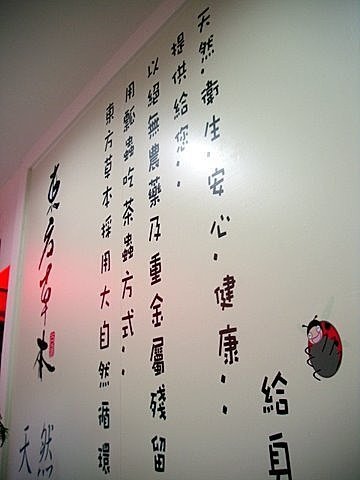 東方草本
天然
東方草本採用大自然循環
用瓢蟲吃茶蟲方式..
以絕無農藥及重金屬殘留
提供給您..
天然.衛生.安心.健康..
給身